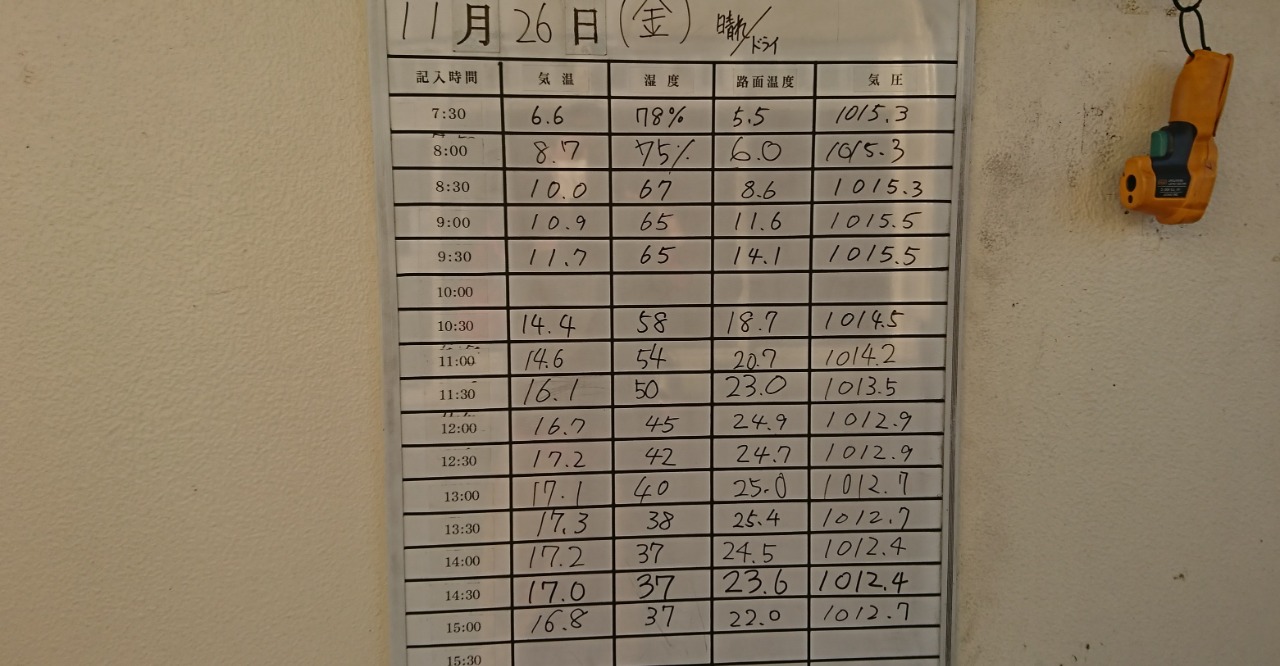 11月26日(金) 晴れ/ドライ
記入時間 気温 湿度 路面温度 気圧
7:30 6.6 78% 5.5 1015.3
8:00 8.7 75% 6.0 1015.3
8:30 10.0 67 8.6 1015.3
9:00 10.9 65 11.6 1015.5
9:30 11.7 65 14.1 1015.5
10:00
10:30 14.4 58 18.7 1014.5
11:00 14.6 54 20.7 1014.2
11:30 16.1 50 23.0 1013.5
12:00 16.7 45 24.9 1012.9
12:30 17.2 42 24.7 1012.9
13:00 17.1 40 25.0 1012.7
13:30 17.3 38 25.4 1012.7
14:00 17.2 37 24.5 1012.4
14:30 17.0 37 23.6 1012.4
15:00 16.8 37 22.0 1012.7
15:30